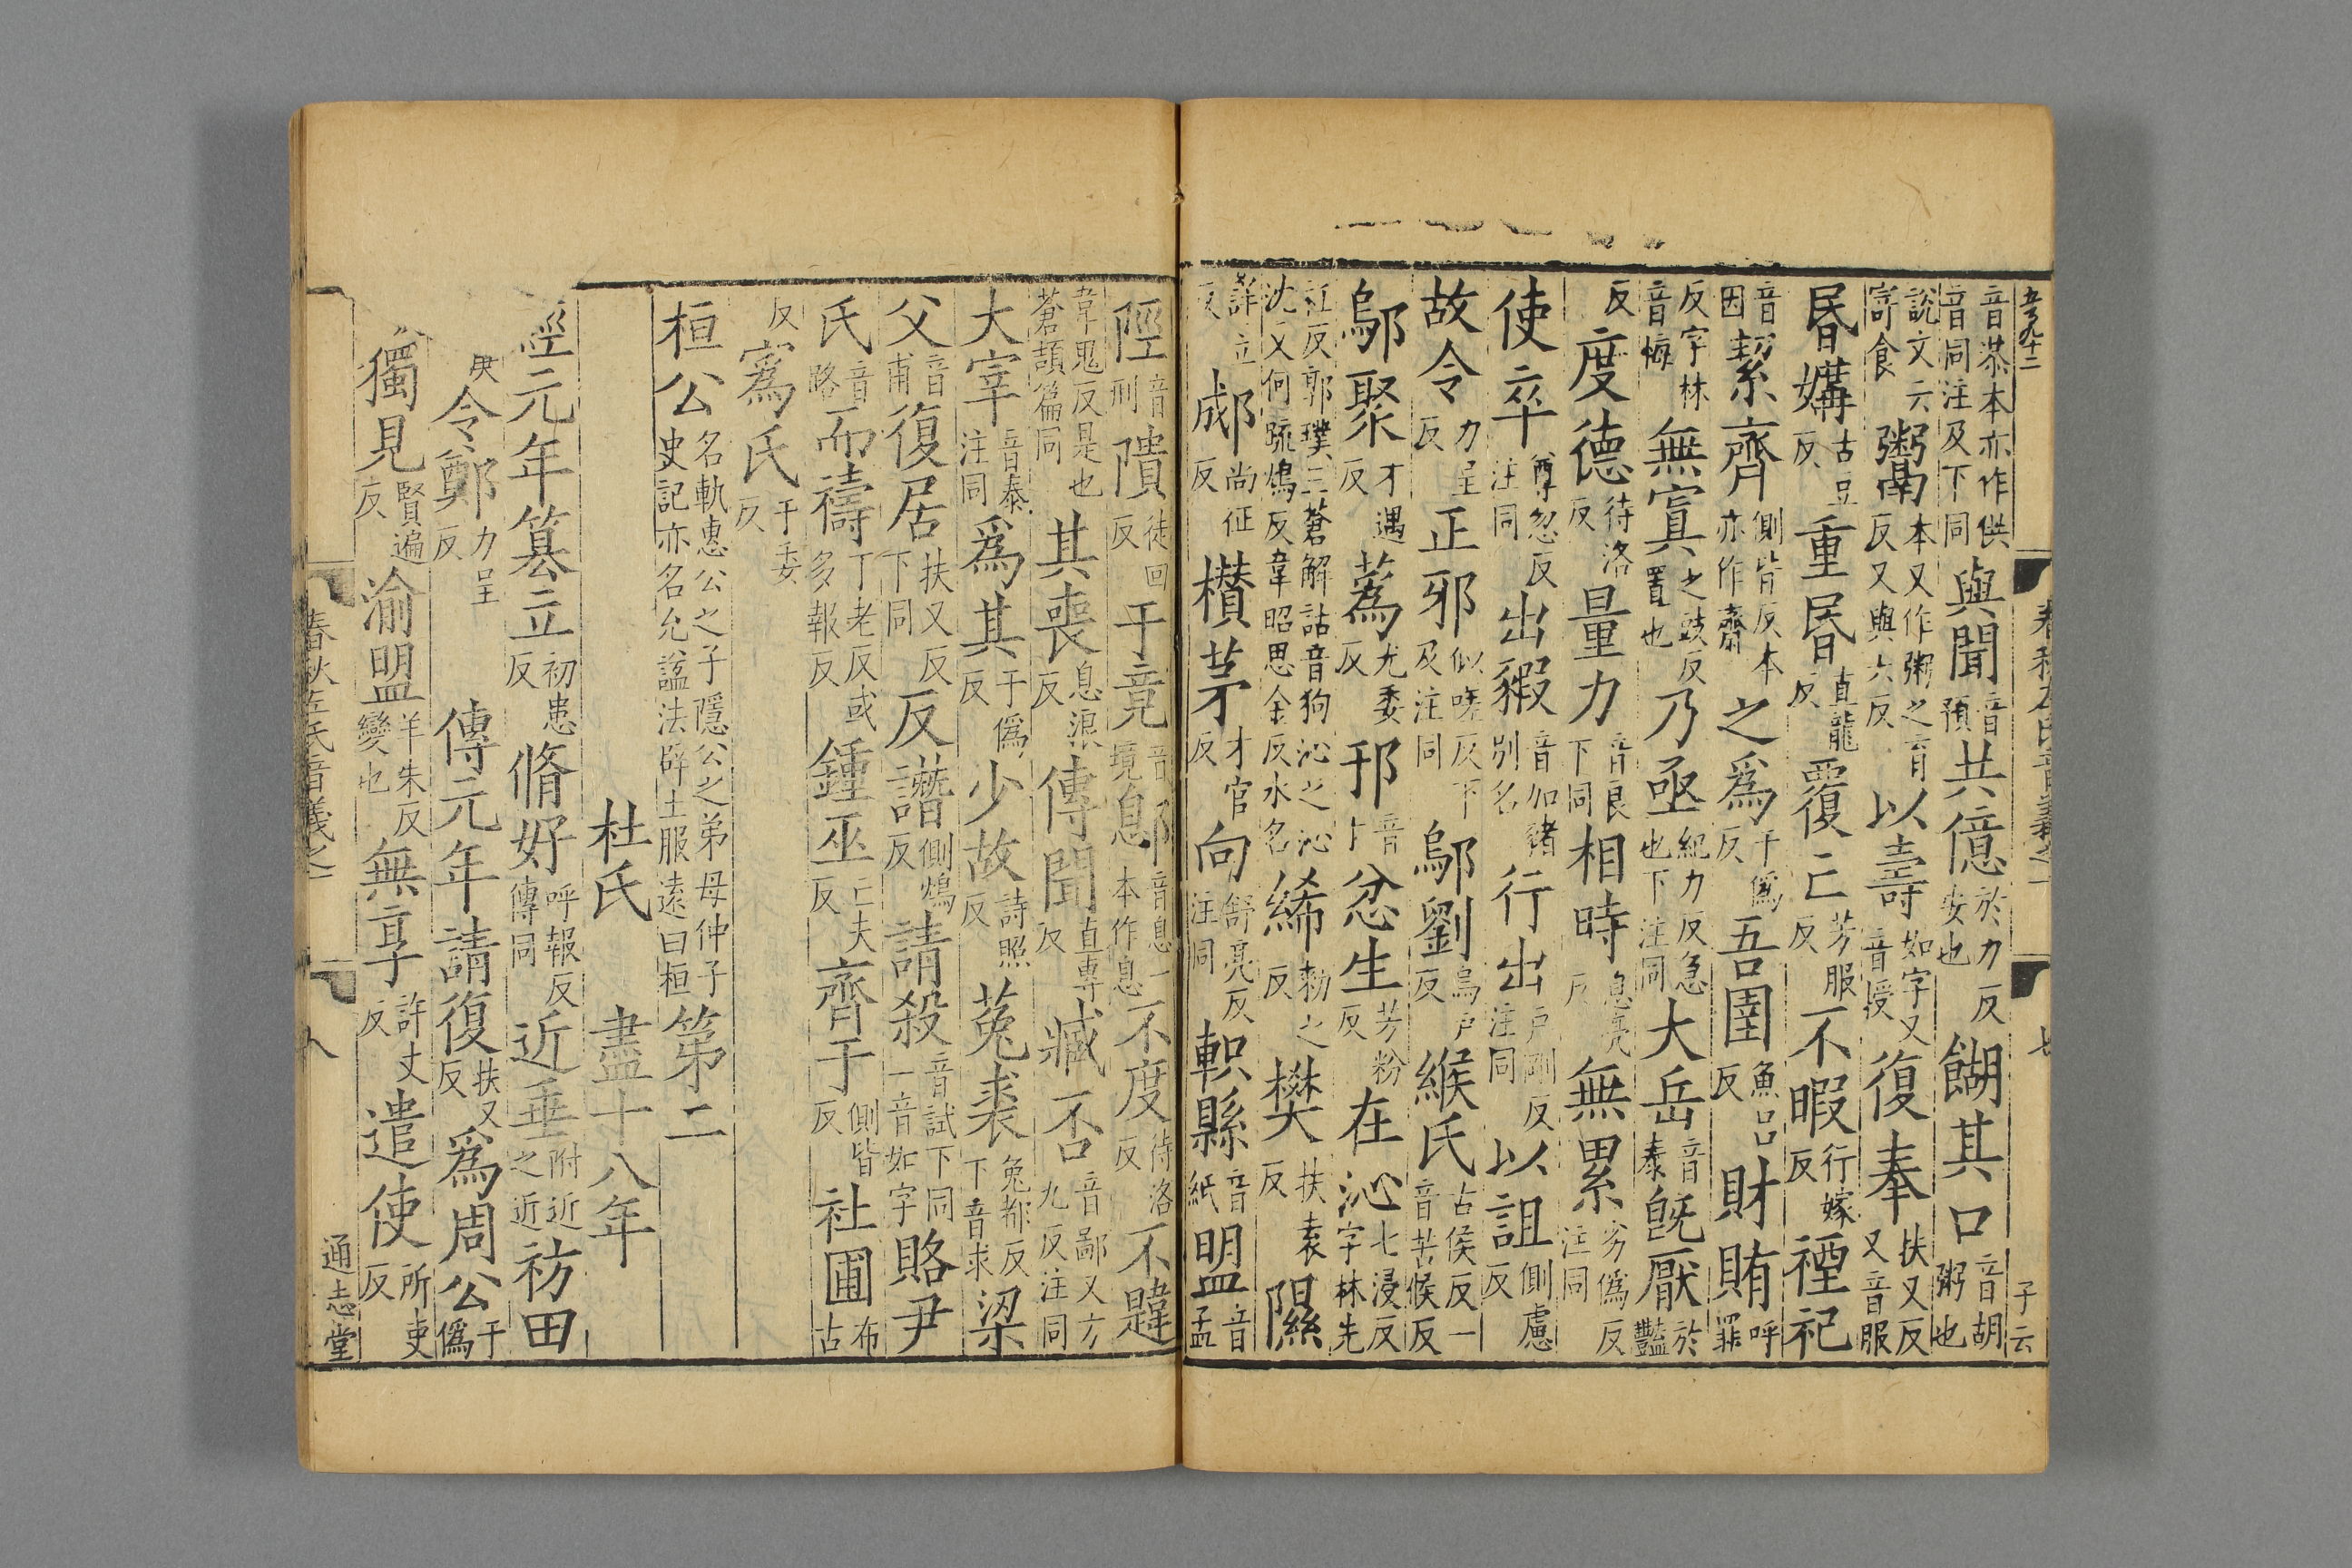 春秋左氏音義之一 七 子云
音恭本亦作供音同注及下同 與聞音預 共億於力反安也 餬其口音胡粥也
說文云寄食 鬻本又作粥之育反又與六反 以壽如字又音授 復奉扶又反又音服
昬媾古豆反 重昬直龍反 覆亡芳服反 不暇行嫁反 禋祀
音因 絜齊側皆反本亦作齋 之爲于僞反 吾圉魚呂反 財賄呼罪
反字林音悔 無寘之豉反置也 乃亟紀力反急也下注同 大岳音泰 旣厭於豔
反 度德待洛反 量力音良下同 相時息亮反 無累劣僞反注同
使卒尊忽反注同 出豭音加豬別名 行出戶剛反注同 以詛側慮反
故令力呈反 正邪似嗟反下及注同 鄔劉烏戶反 緱氏古侯反一音苦候反
鄔聚才遇反 蒍尤委反 邘音于 忿生芳粉反 在沁七浸反字林先
江反郭璞三蒼解詁音狗沁之沁沈又何疏鴆反韋昭思金反水名 絺勑之反 樊扶袁反 隰
詳立反 郕尚征反 欑茅才官反 向舒亮反注同 軹縣音紙 盟音孟
陘音刑 隤徒回反 于竟音境 鄎音息一本作息 不度待洛反 不韙
韋鬼反是也蒼頡篇同 其喪息浪反 傳聞直專反 臧否音鄙又方九反注同
大宰音泰注同 爲其于僞反 少故詩照反 菟裘兔都反下音求 梁
父音甫 復居扶又反下同 反譖側鴆反 請殺音試下同一音如字 賂尹
氏音路 而禱丁老反或多報反 鍾巫亡夫反 齊于側皆反 社圃布古
反 寪氏于委反
桓公名軌惠公之子隱公之弟母仲子史記亦名允謚法辟土服遠曰桓 第二
杜氏 盡十八年
經元年簒立初患反 脩好呼報反傳同 近垂附近之近 祊田
庚 令鄭力呈反 傳元年請復扶又反 爲周公于僞
獨見賢遍反 渝盟羊朱反變也 無享許丈反 遣使所吏反
春秋左氏音義之一 八 通志堂